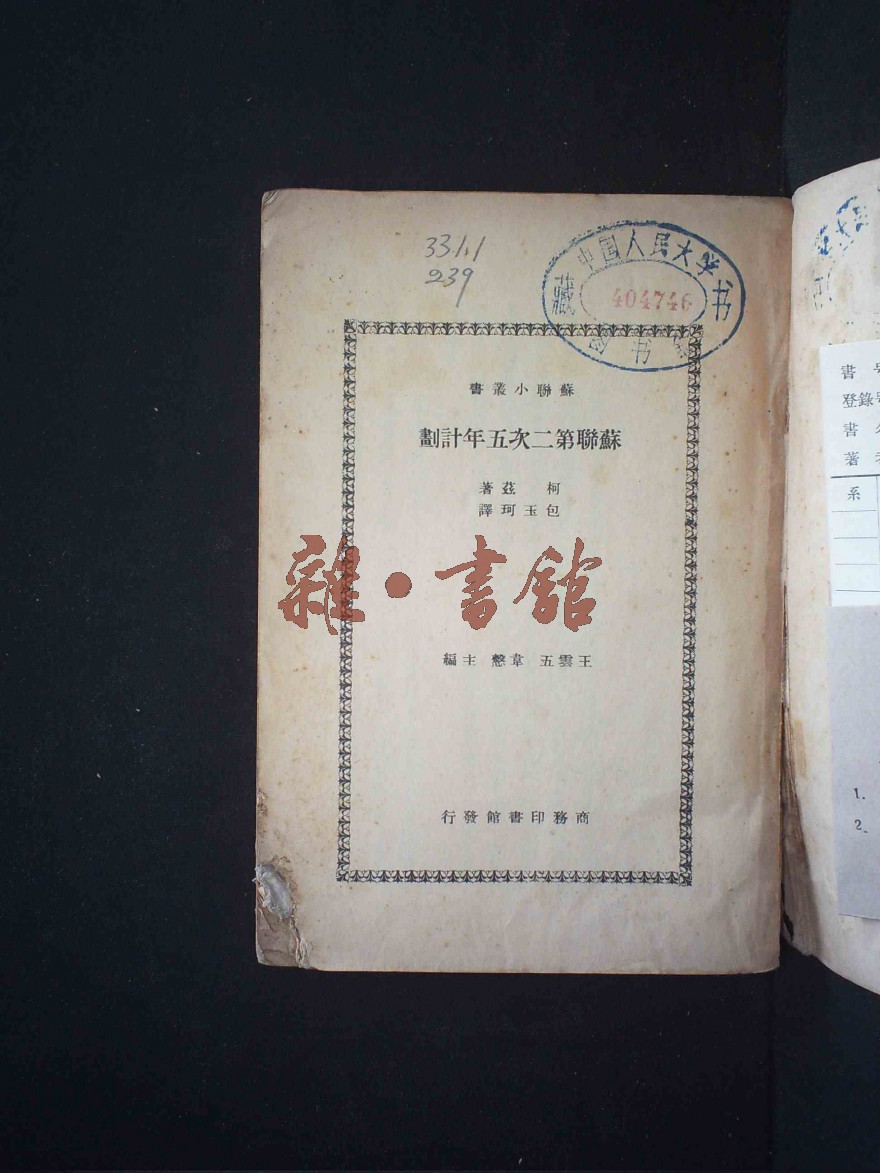 33.1.1
239
中国人民大学
404746
藏书
图书馆
蘇聯小叢書
蘇聯第二次五年計劃
柯茲著
包玉珂譯
雜·書館
王雲五 韋愨 主編
商務印書館發行
書
登錄
書
著
系
1.
2.